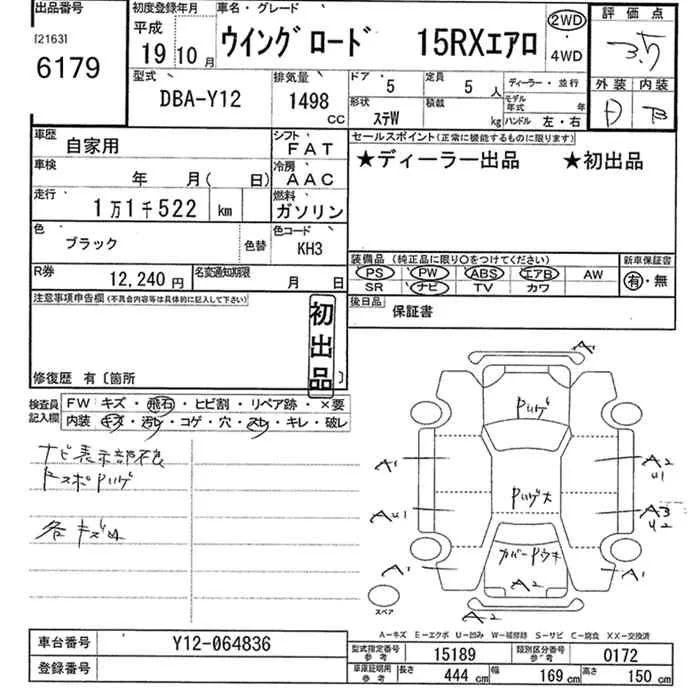 出品番号 初度登録年月 車名・グレード 2WD 評価点
[2163] 平成 ウイングロード 15RXエアロ ・ 3.5
6179 19 10月 4WD
型式 排気量 ドア 定員 ディーラー・並行 外装 内装
DBA-Y12 1498 CC 5 5人 モデル年式 年 D B
形状 ステW 積載 kg ハンドル 左・右
車歴 自家用 シフト FAT セールスポイント(正常に機能するものに限ります)
車検 年 月( 日) 冷房 AAC ★ディーラー出品 ★初出品
走行 1万1千522 km 燃料 ガソリン
色 ブラック 色替 色コード KH3
装備品(純正品に限り○をつけてください) 新車保証書
R券 12,240円 名変通知期限 月 日 PS PW ABS エアB AW 有・無
SR ナビ TV カワ
注意事項申告欄(不具合内容等は具体的に記入して下さい) 後日品 保証書
初出品
修復歴 有〔箇所 〕
検査員記入欄 FW キズ・飛石・ヒビ割・リペア跡・×要
内装 キズ・汚レ・コゲ・穴・スレ・キレ・破レ
ナビ表示部不良
各キズ凹
A
A1 A2
U1
AU1 A3
U2
A1 A1
A2
A2
スペア
A−キズ E−エクボ U−凹み W−補修跡 S−サビ C−腐食 XX−交換済
車台番号 Y12-064836 型式指定番号 参考 15189 類別区分番号 参考 0172
登録番号 車庫証明用 参考 長さ 444 cm 幅 169 cm 高さ 150 cm